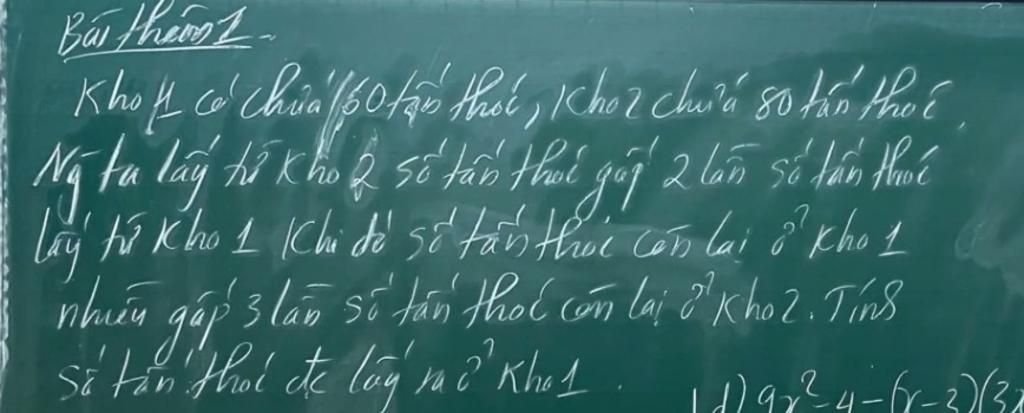 Bài thêm 1.
Kho 1 có chứa 60 tấn thóc, Kho 2 chứa 80 tấn thóc.
Ng ta lấy từ kho 2 số tấn thóc gấp 2 lần số tấn thóc
lấy từ kho 1 Khi đó số tấn thóc còn lại ở kho 1
nhiều gấp 3 lần số tấn thóc còn lại ở kho 2. Tính
số tấn thóc đc lấy ra ở kho 1.
d) 9x²-4-(x-2)(3x